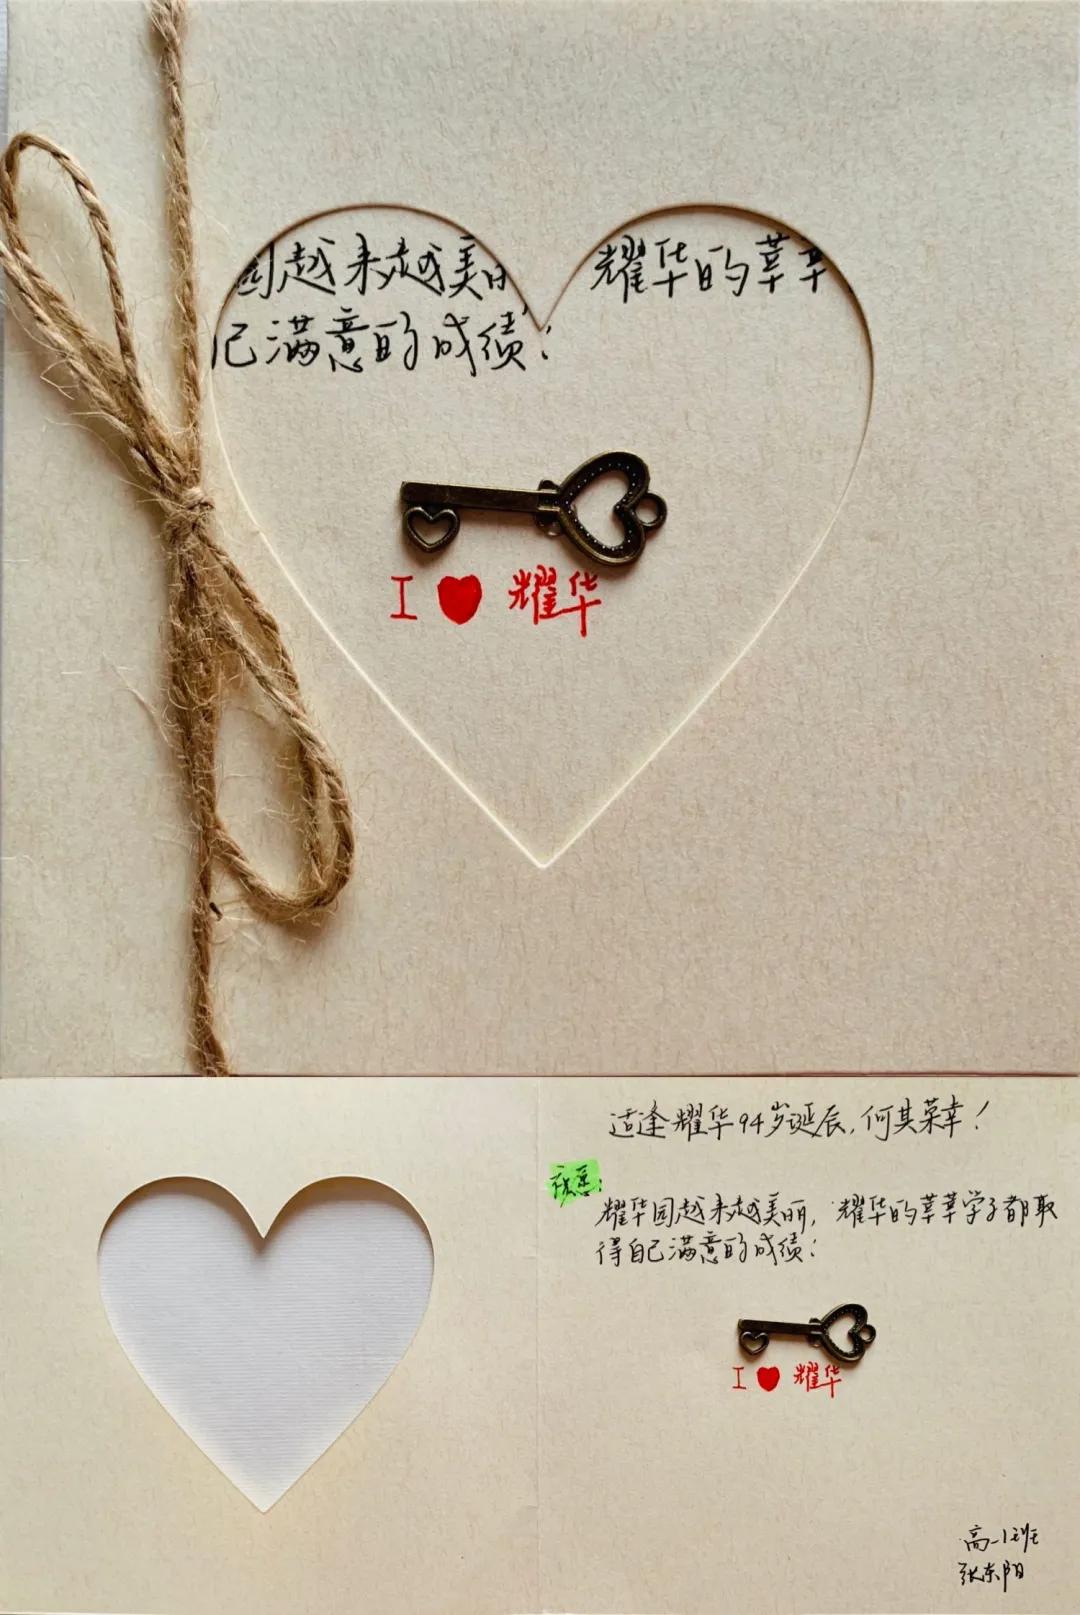 园越来越美丽 耀华的莘莘
己满意的成绩！
I ❤ 耀华
适逢耀华94岁诞辰，何其荣幸！
祝愿：
耀华园越来越美丽，耀华的莘莘学子都取
得自己满意的成绩！
I ❤ 耀华
高一1班
张东阳